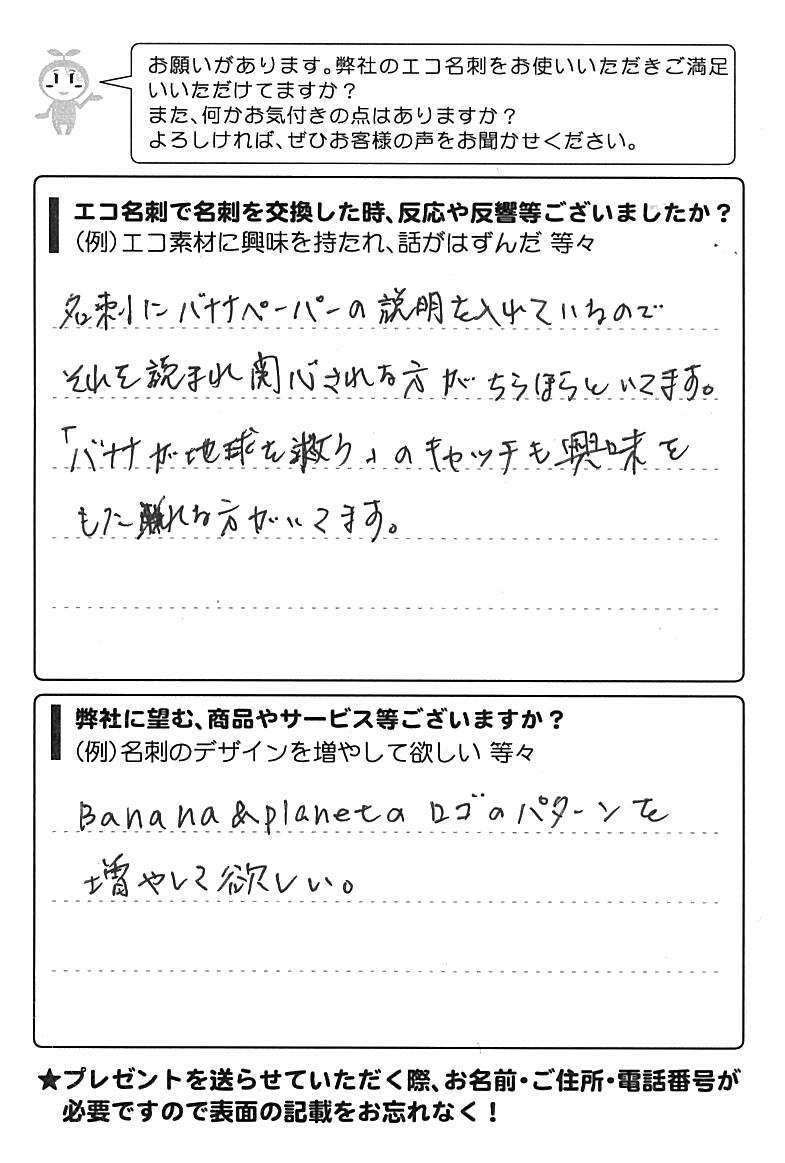 お願いがあります。弊社のエコ名刺をお使いいただきご満足
いいただけてますか？
また、何かお気付きの点はありますか？
よろしければ、ぜひお客様の声をお聞かせください。
エコ名刺で名刺を交換した時、反応や反響等ございましたか？
（例）エコ素材に興味を持たれ、話がはずんだ 等々
名刺にバナナペーパーの説明を入れているので
それを読まれ関心される方がちらほらといてます。
「バナナが地球を救う」のキャッチも興味を
もたれる方がいてます。
弊社に望む、商品やサービス等ございますか？
（例）名刺のデザインを増やして欲しい 等々
Banana&planetのロゴのパターンを
増やして欲しい。
★プレゼントを送らせていただく際、お名前・ご住所・電話番号が
必要ですので表面の記載をお忘れなく！